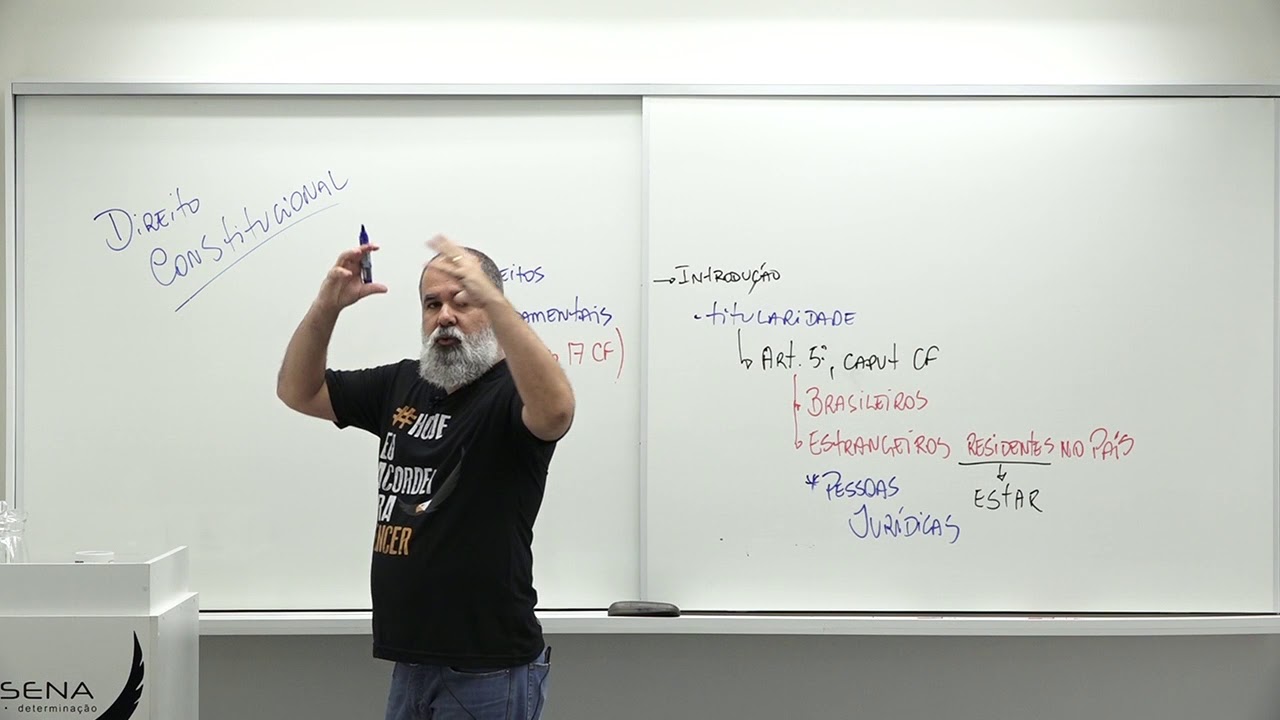 Direito
Constitucional
eitos
amentais
17 CF)
→ Introdução
• titularidade
↳ Art. 5º, caput CF
Brasileiros
Estrangeiros residentes no País
↓
estar
* Pessoas
Jurídicas
#HOJE
EU
ACORDEI
RA
NCER
SENA
• determinação